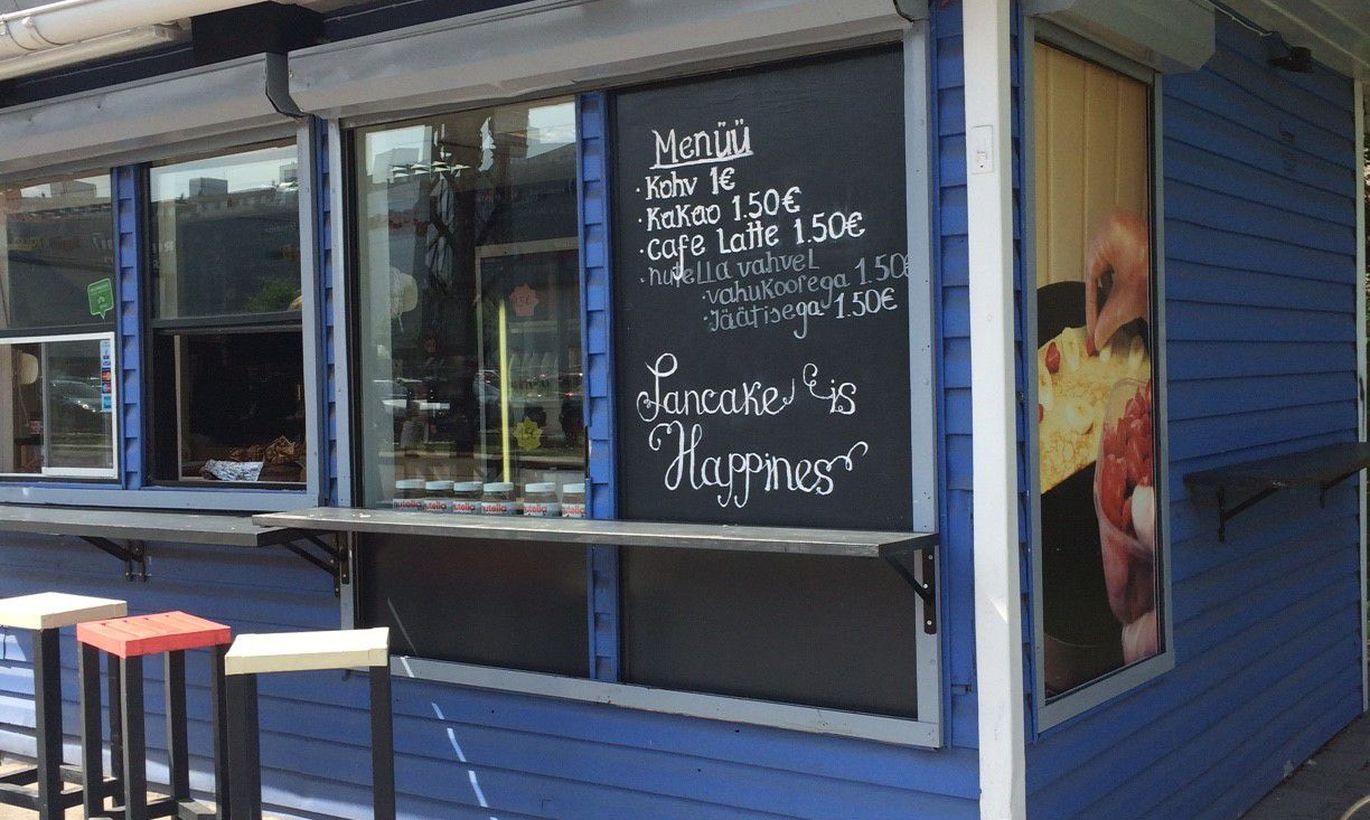 Menüü
· Kohv 1€
· Kakao 1.50€
· cafe Latte 1.50€
· nutella vahvel
· vahukoorega 1.50€
· Jäätisega 1.50€
Pancake is
Happines
nutella utella utella utella utella